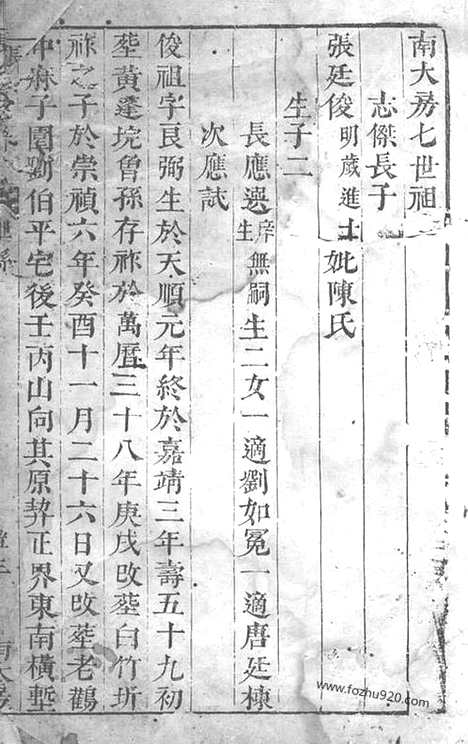 南大房七世祖
志傑長子
張廷俊明歲進士妣陳氏
生子二
長應選庠生無嗣生二女一適劉如冕一適唐廷棟
次應試
俊祖字良弼生於天順元年終於嘉靖三年壽五十九初
塟黃蓬垸曾孫存祚於萬曆三十八年庚戌改塟白竹坵
祚之子於崇禎六年癸酉十一月二十六日又改塟老鸛
中蔴子園劉伯平宅後壬丙山向其原契正界東南橫塹
www.fozhu920.com